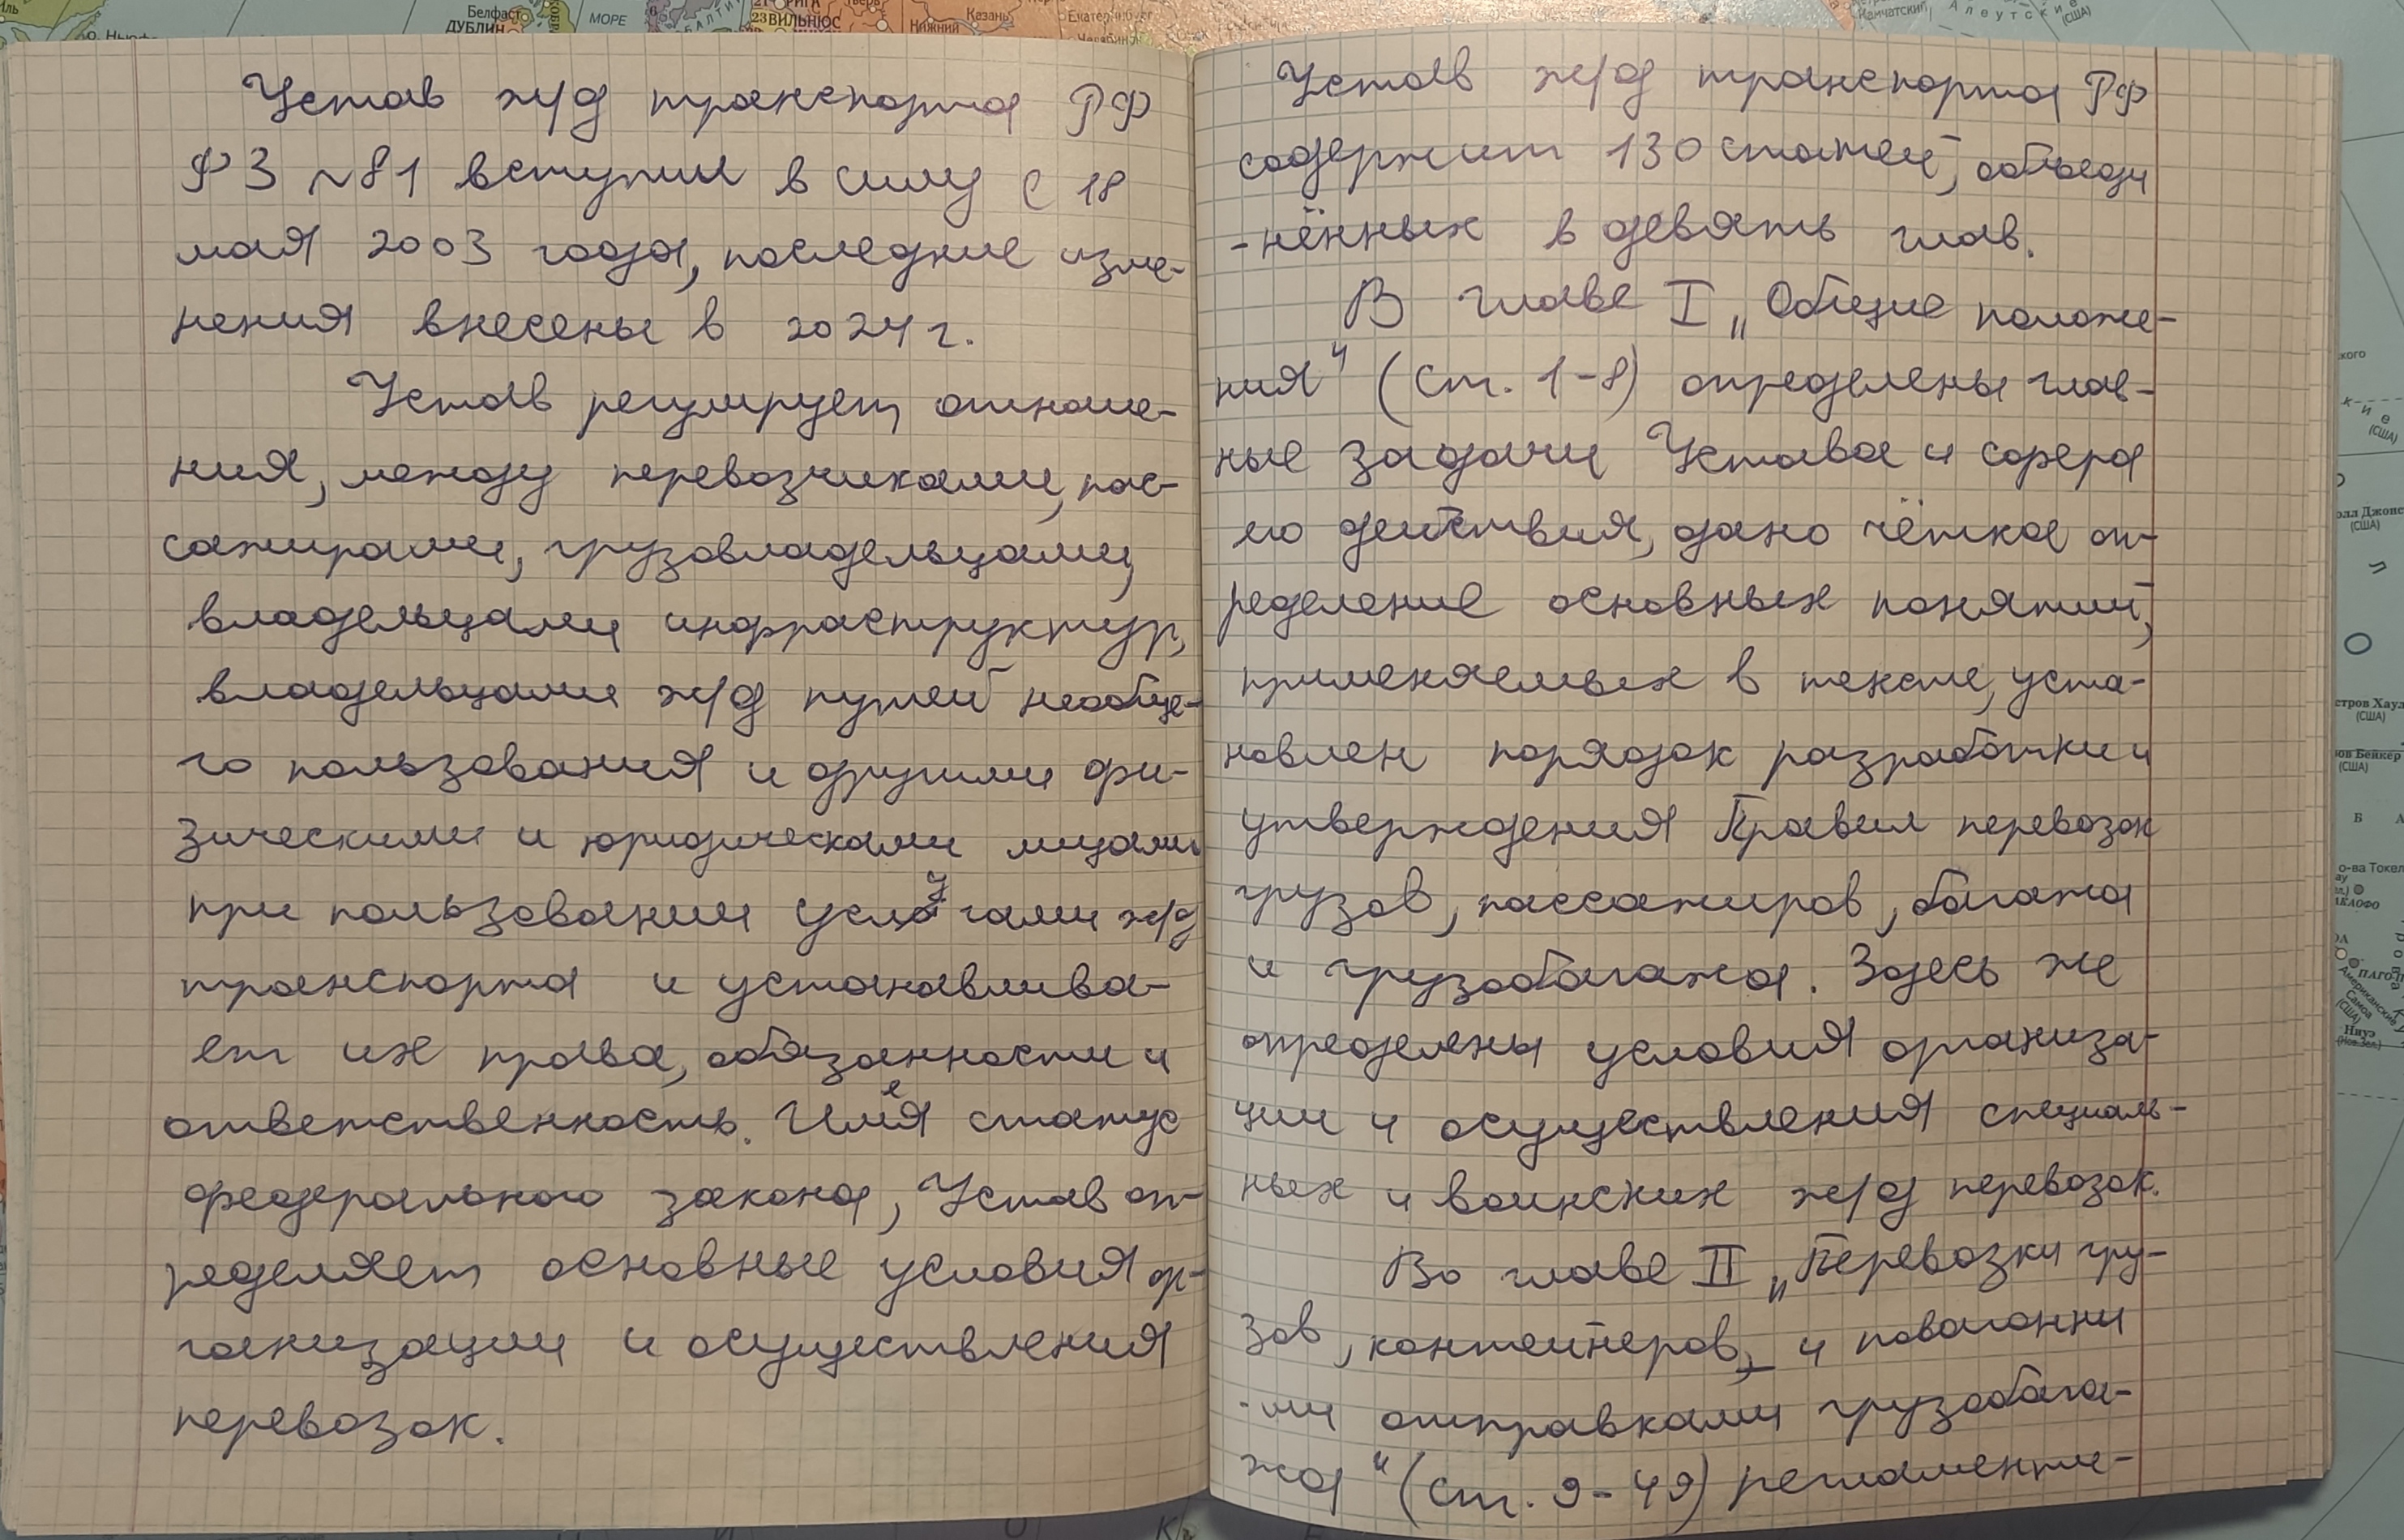 Белфаст
ДУБЛИН
МОРЕ
РИГА
23 ВИЛЬНЮС
Нижний
Казань
Екатеринбург
Камчатский
Алеутские
(США)
Устав ж/д транспорта РФ
ФЗ №81 вступил в силу с 18
мая 2003 года, последние изме-
нения внесены в 2024 г.
Устав регулирует отноше-
ния, между перевозчиками, пас-
сажирами, грузовладельцами,
владельцами инфраструктур,
владельцами ж/д путей необще-
го пользования и другими фи-
зическими и юридическами лицами
при пользовании услугами ж/д
транспорта и устанавлива-
ет их права, обязанности и
ответственность. Имея статус
федерального закона, Устав оп-
ределяет основные условия ор-
ганизации и осуществления
перевозок.
Устав ж/д транспорта РФ
содержит 130 статей, объеди
-нённых в девять глав.
В главе I „Общие положе-
ния" (ст. 1-8) определены глав-
ные задачи Устава и сфера
его действия, дано чёткое оп-
ределение основных понятий,
применяемых в тексте, уста-
новлен порядок разработки и
утверждения Правил перевозок
грузов, пассажиров, багажа
и грузобагажа. Здесь же
определены условия организа-
ции и осуществления специаль-
ных и воинских ж/д перевозок.
Во главе II „Перевозки гру-
зов, контейнеров, и повагонны
-ми отправками грузобага-
жа" (ст. 9-49) регламенти-
(США)
(США)
(США)
о-ва Токел
ПАГО-П
Американские
Самоа
(США)
Ниуэ
(Нов.Зел.)